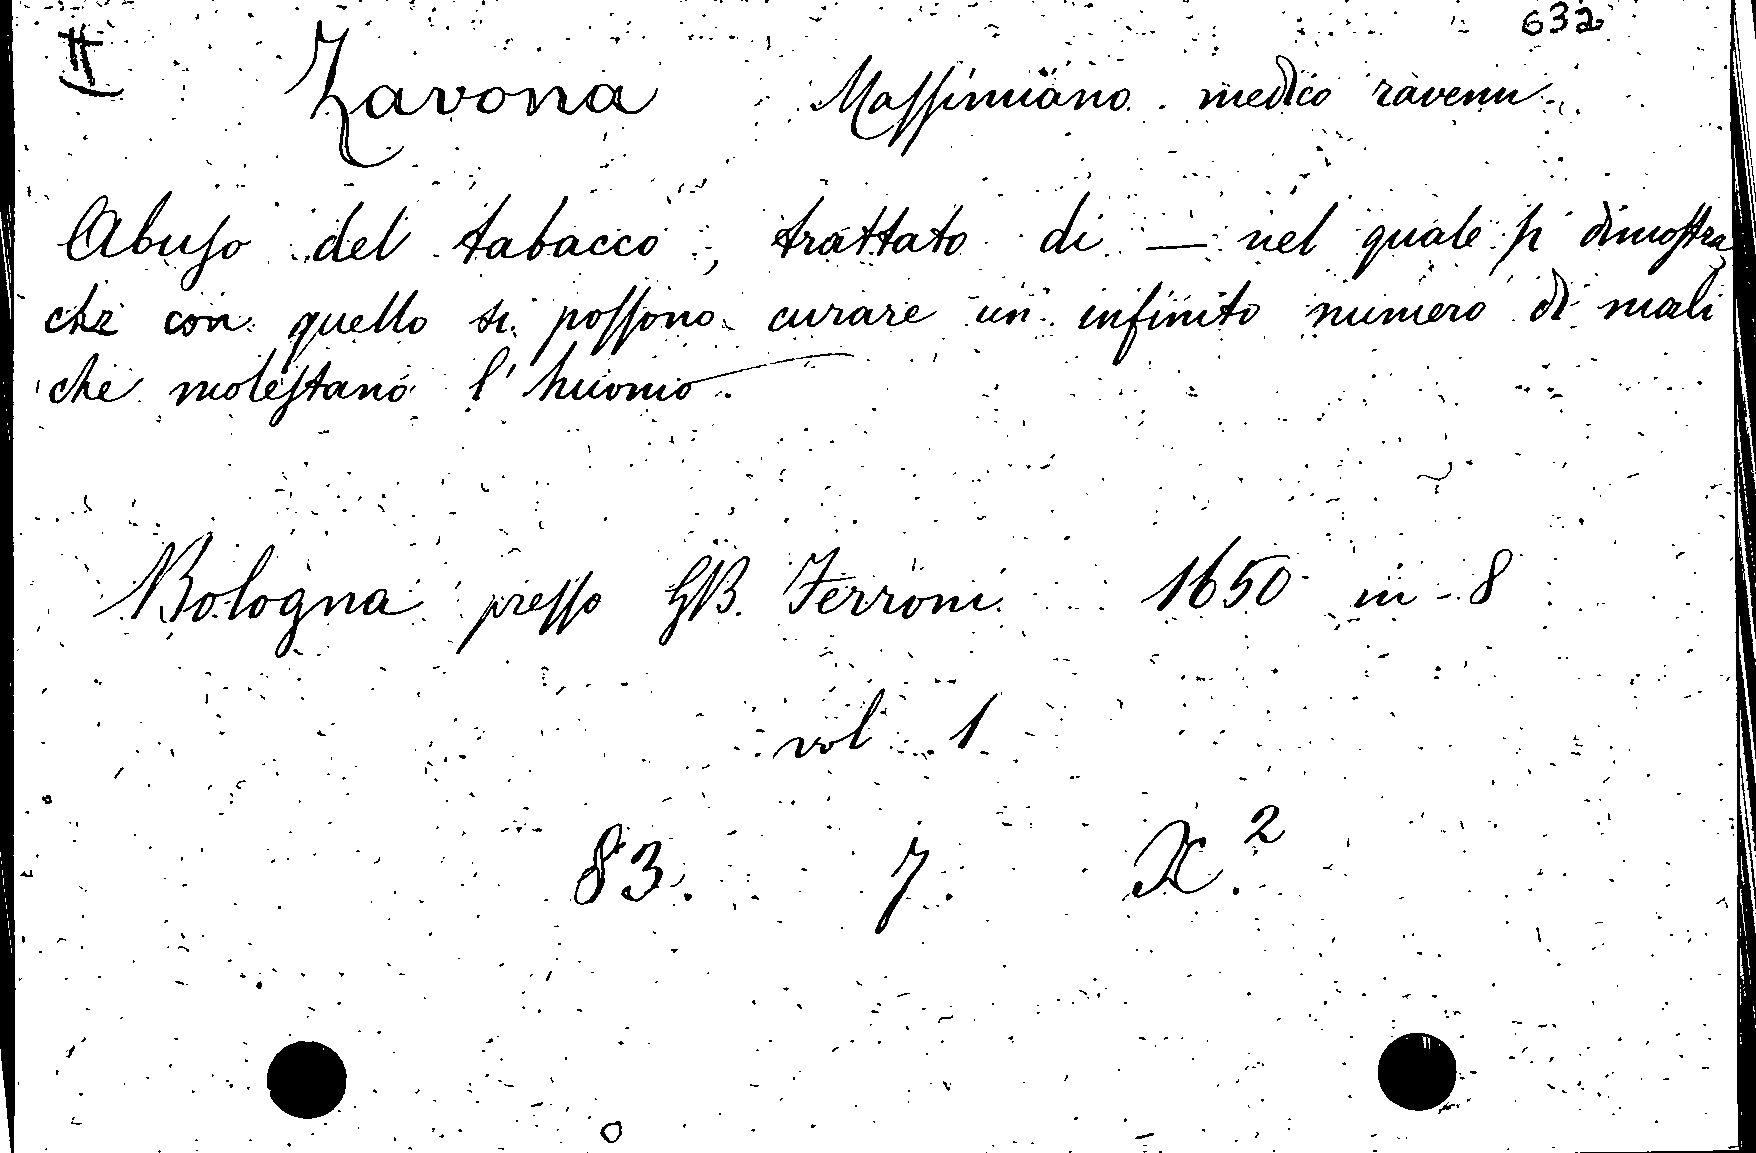 632
Zavona Massimiano. medico ravenn.
Abuso del tabacco, trattato di — nel quale si dimostra
che con quello si possono curare un infinito numero di mali
che molestano l'huomo.
Bologna presso GB. Ferroni 1650 in-8
vol 1.
83. 7. X.²